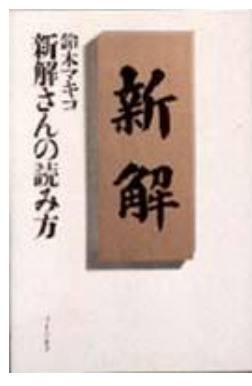 鈴木マキコ
新解さんの読み方
新解